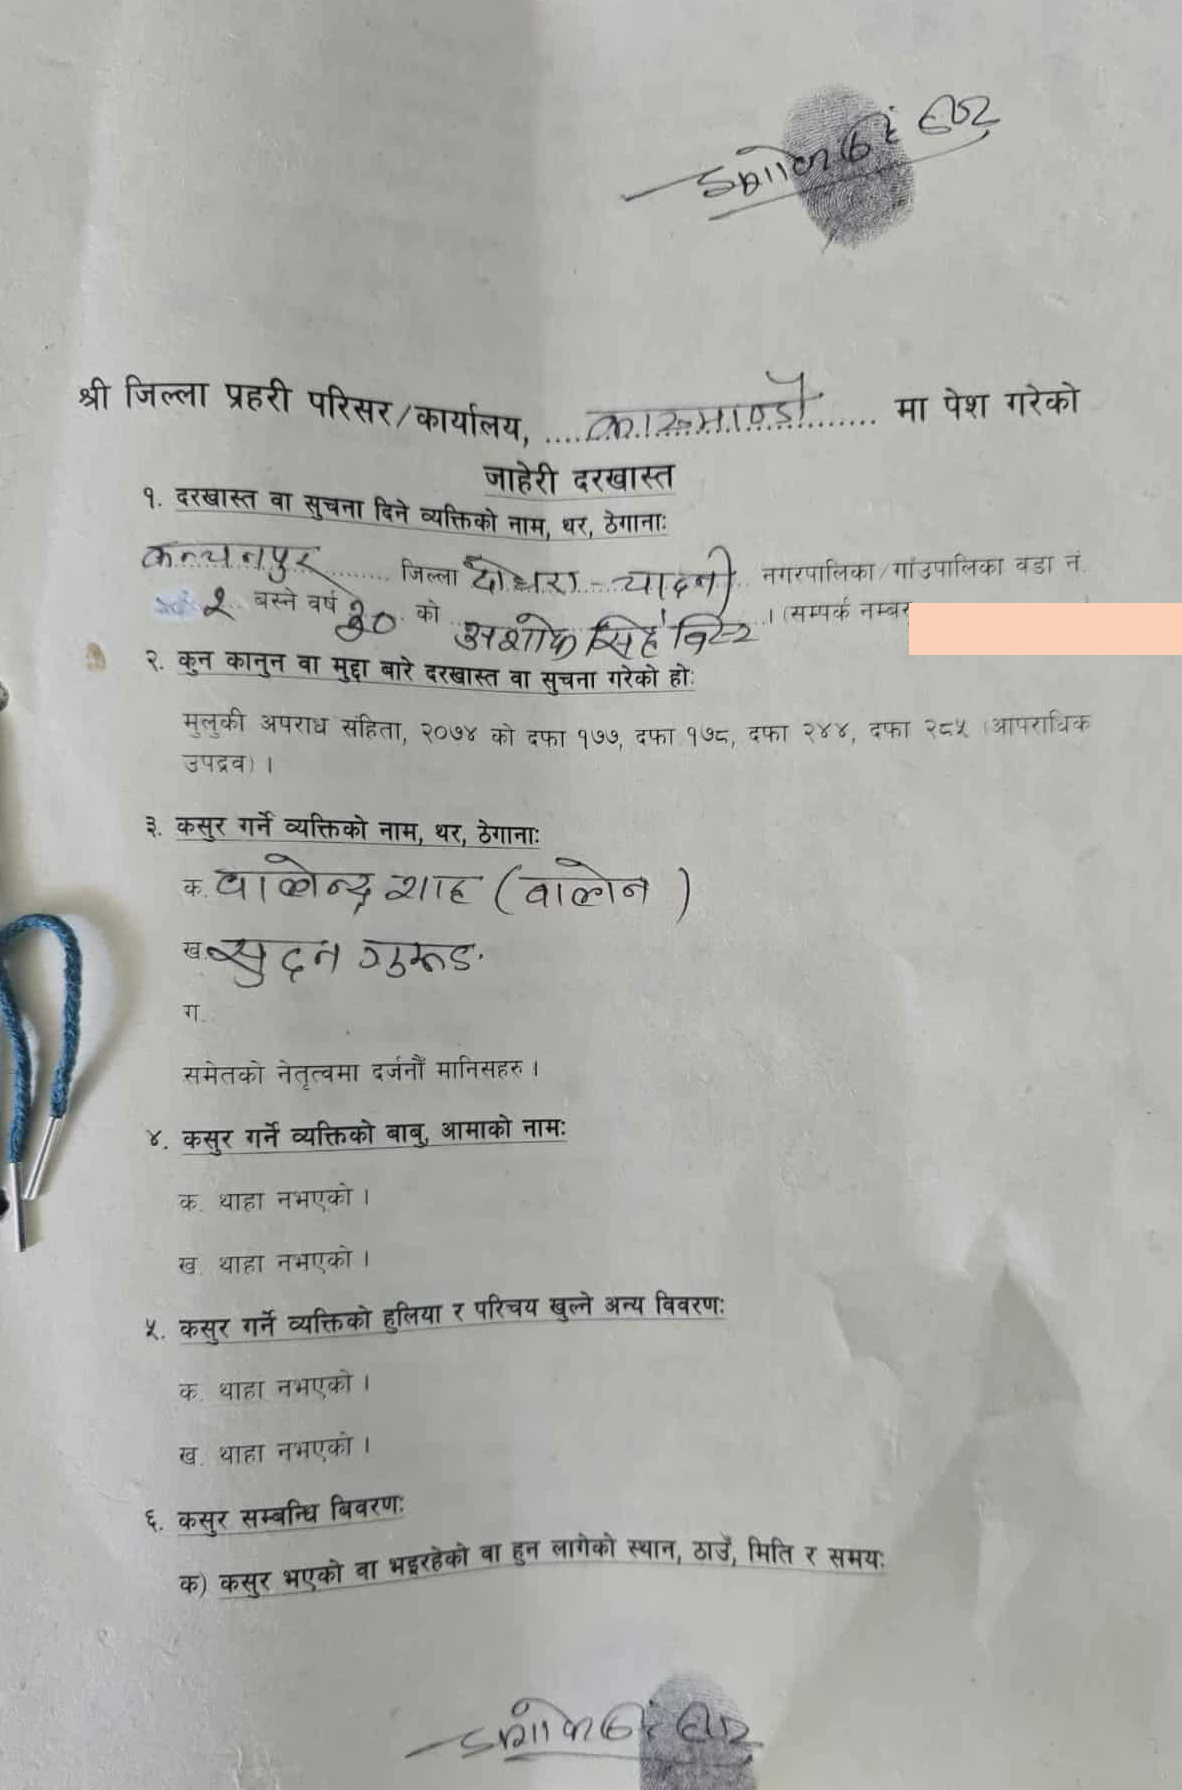 अशोक सिंह विष्ट
श्री जिल्ला प्रहरी परिसर/कार्यालय, ....काठमाण्डौ........ मा पेश गरेको
जाहेरी दरखास्त
१. दरखास्त वा सुचना दिने व्यक्तिको नाम, थर, ठेगानाः
कन्चनपुर ........ जिल्ला दोधारा - चादनी नगरपालिका/गांउपालिका वडा नं.
२ बस्ने वर्ष ३० को अशोक सिहं विष्ट । (सम्पर्क नम्बर
२. कुन कानुन वा मुद्दा बारे दरखास्त वा सुचना गरेको होः
मुलुकी अपराध संहिता, २०७४ को दफा १७७, दफा १७८, दफा २४४, दफा २८५ (आपराधिक
उपद्रव) ।
३. कसुर गर्ने व्यक्तिको नाम, थर, ठेगानाः
क. वालेन्द्र शाह (वालेन )
ख. सुदन गुरूङ.
ग.
समेतको नेतृत्वमा दर्जनौं मानिसहरु ।
४. कसुर गर्ने व्यक्तिको बाबु, आमाको नामः
क. थाहा नभएको ।
ख. थाहा नभएको ।
५. कसुर गर्ने व्यक्तिको हुलिया र परिचय खुल्ने अन्य विवरणः
क. थाहा नभएको ।
ख. थाहा नभएको ।
६. कसुर सम्बन्धि बिवरणः
क) कसुर भएको वा भइरहेको वा हुन लागेको स्थान, ठाउँ, मिति र समयः
अशोक सिंह विष्ट